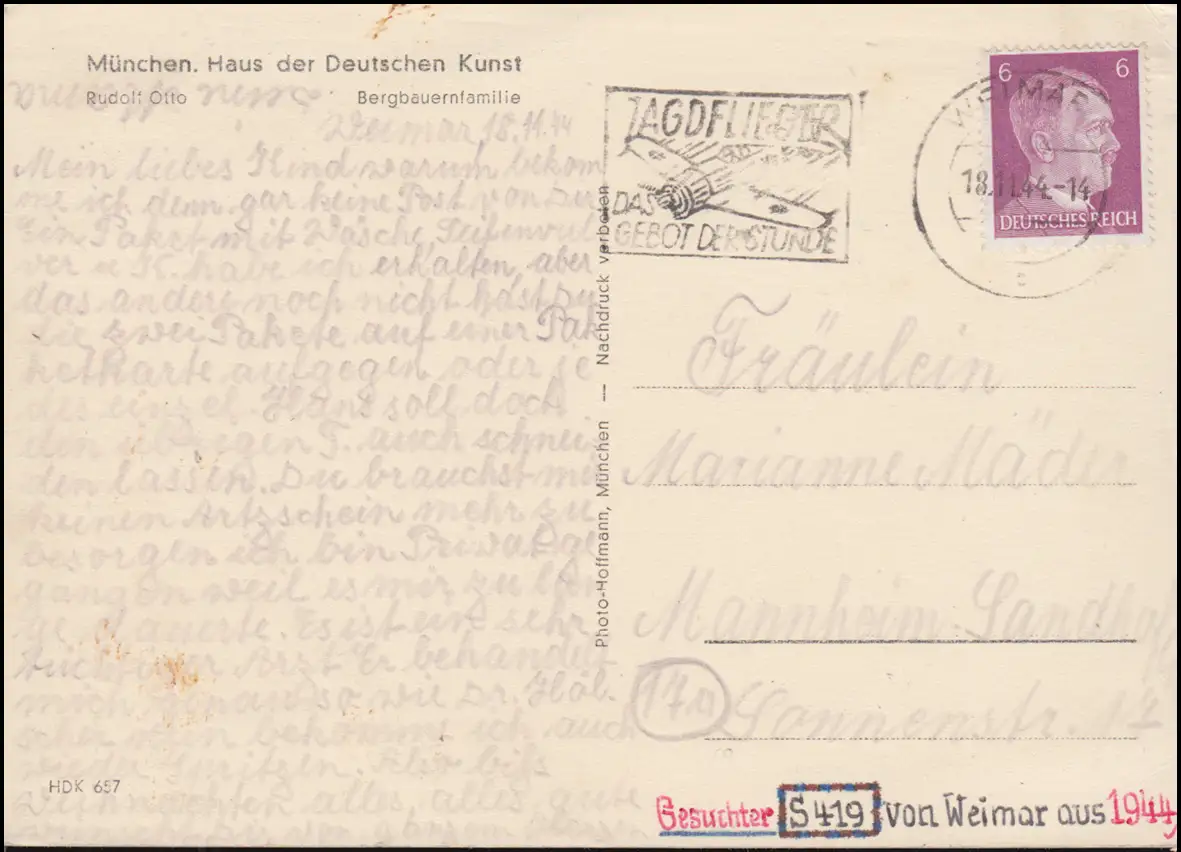 München. Haus der Deutschen Kunst
Rudolf Otto Bergbauernfamilie
Weimar 18.11.44
Mein liebes Kind warum bekom
me ich denn gar keine Post von Dir
Ein Paket mit Wäsche, Seifenpul
ver u K. habe ich erhalten, aber
das andere noch nicht hast Du
die zwei Pakete auf einer Pak
ketkarte aufgegen oder je
des einzel. Hans soll doch
den übrigen T. auch schnei
den lassen. Du brauchst mir
keinen Artzschein mehr zu
besorgen ich bin Privat ge
gangen weil es mir zu lan
ge dauerte Es ist ein sehr
Arzt Er behandelt
mich genau so wie Dr. Höl
scher nun bekomme ich auch
wieder Spritzen. Also bis
Weihnachten alles, alles gute
JAGDFLIEGER
DAS
GEBOT DER STUNDE
WEIMAR
18.11.44-14
c
6 6
DEUTSCHES REICH
Photo-Hoffmann, München — Nachdruck verboten
Fräulein
Marianne Mäder
Mannheim Sandhof
17a Sonnenstr.
HDK 657
Gesuchter S 419 von Weimar aus 1944